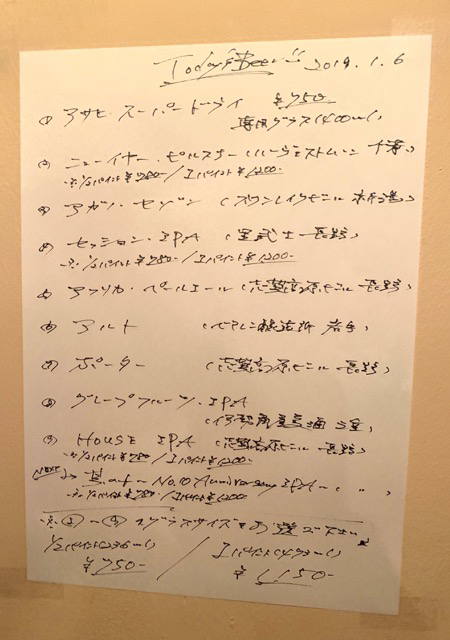 Today's Beer 2019.1.6
① アサヒ・スーパードライ ¥750-
専用グラス(400ml)
② ニューイヤー・ピルスナー (ハーヴェストムーン 千葉)
※ 1/2パイント ¥780- / 1パイント ¥1200-
③ アガノ・セゾン (スワンレイクビール 新潟)
④ セッション・IPA (里武士 長野)
※ 1/2パイント ¥780- / 1パイント ¥1200-
⑤ アフリカ・ペールエール (志賀高原ビール 長野)
⑥ アルト (ベアレン醸造所 岩手)
⑦ ポーター (志賀高原ビール 長野)
⑧ グレープフルーツ・IPA
(伊勢角屋麦酒 三重)
⑨ HOUSE IPA (志賀高原ビール 長野)
※ 1/2パイント ¥780- / 1パイント ¥1200-
NEXT 其の十 - No.10 Anniversary IPA - ( 〃 〃 )
※ 1/2パイント ¥780- / 1パイント ¥1200
※ ②~⑨ グラスサイズをお選び下さい
1/2パイント(236ml) / 1パイント(473ml)
¥750- ¥1,150-